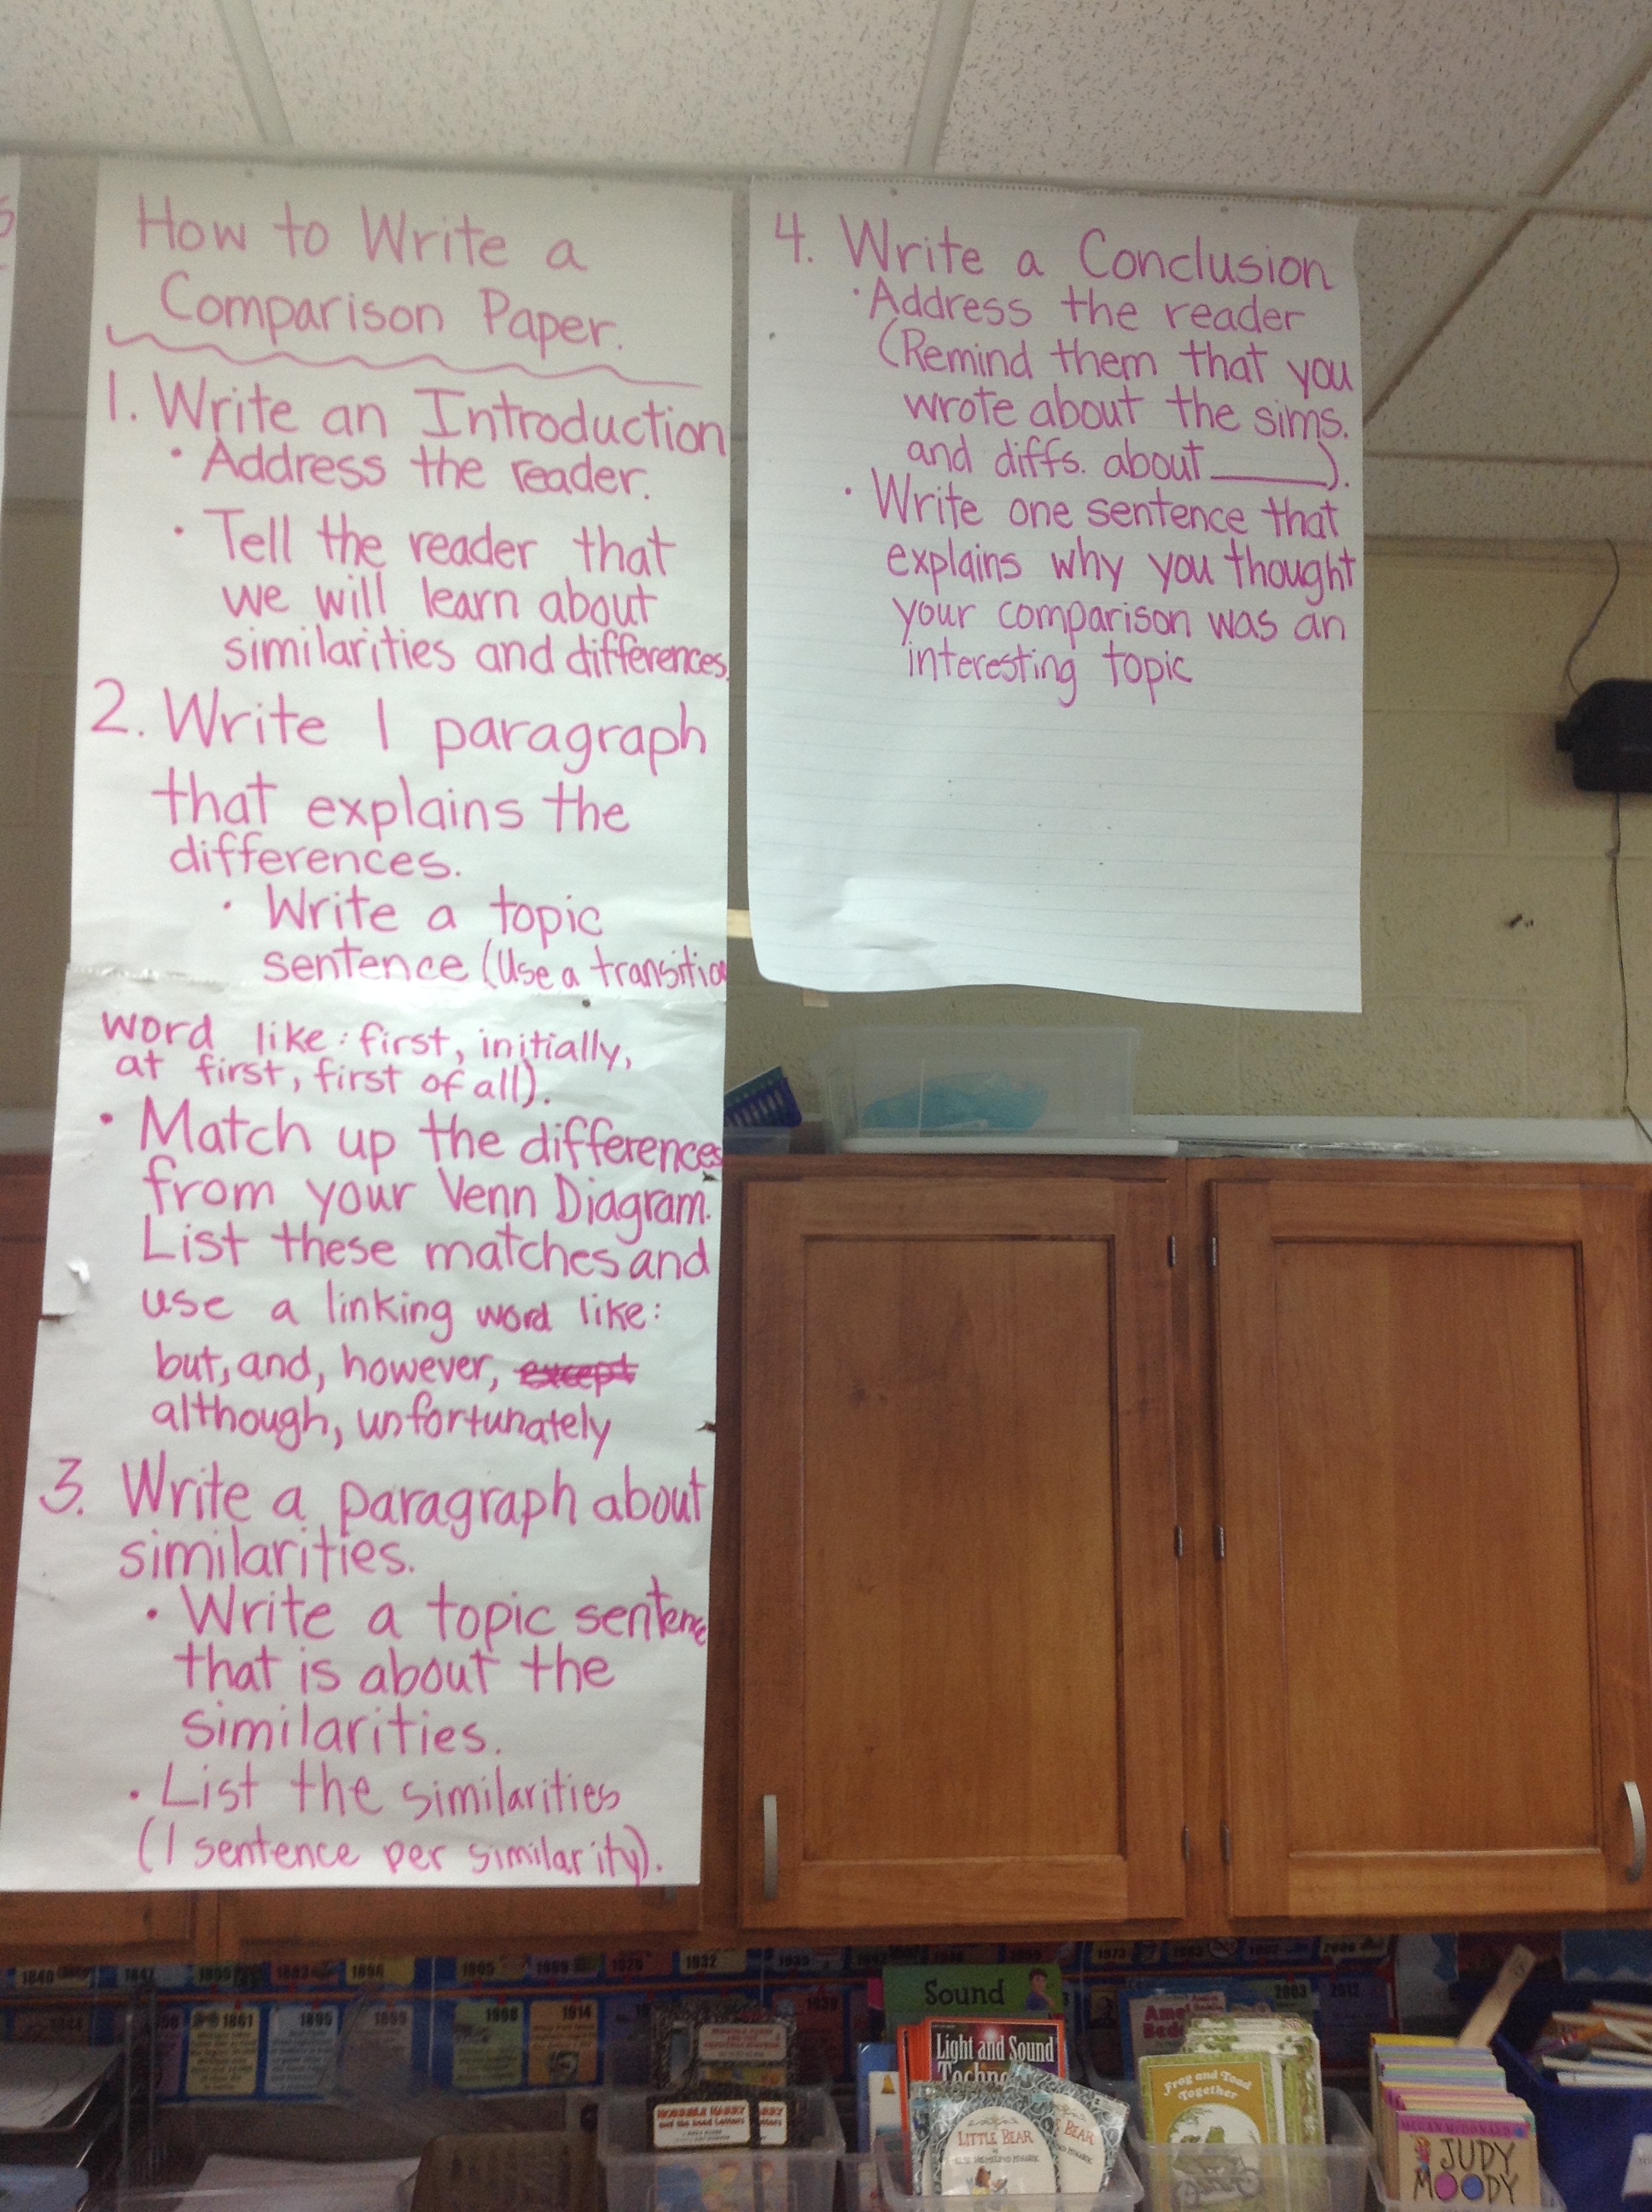 How to Write a
Comparison Paper.
1. Write an Introduction
· Address the reader.
· Tell the reader that
we will learn about
similarities and differences.
2. Write 1 paragraph
that explains the
differences.
· Write a topic
sentence (Use a transitio
word like: first, initially,
at first, first of all).
· Match up the differences
from your Venn Diagram.
List these matches and
use a linking word like:
but, and, however, except
although, unfortunately
3. Write a paragraph about
similarities.
· Write a topic sentence
that is about the
similarities.
· List the similarities
(1 sentence per similarity).
4. Write a Conclusion
· Address the reader
(Remind them that you
wrote about the sims.
and diffs. about_____).
· Write one sentence that
explains why you thought
your comparison was an
interesting topic
1932
1973
1861
1908
1914
2003
2012
Sound
Light and Sound
LITTLE BEAR
BEAR
Frog and Toad
Together
MEGAN MCDONALD
JUDY
MOODY